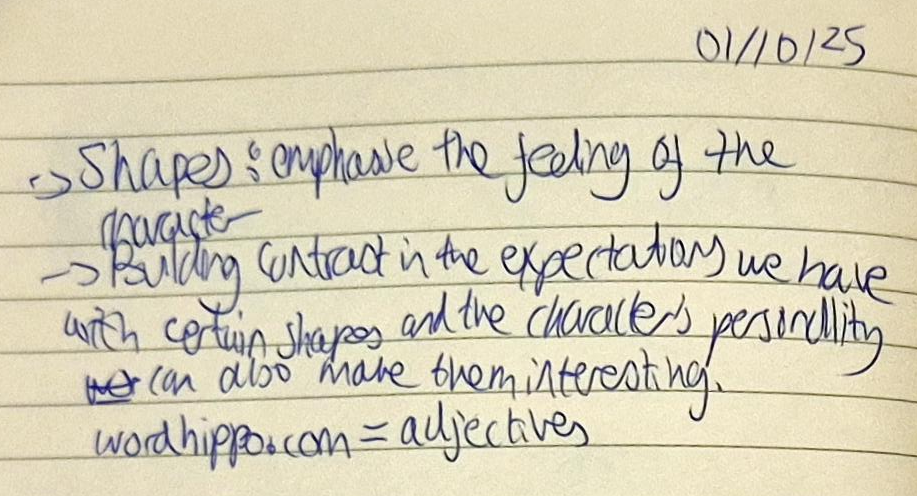 01/10/25
-> Shapes: emphasise the feeling of the
character
-> Building contract in the expectations we have
with certain shapes and the character's personallity
can also make them interesting.
wordhippo.com = adjectives